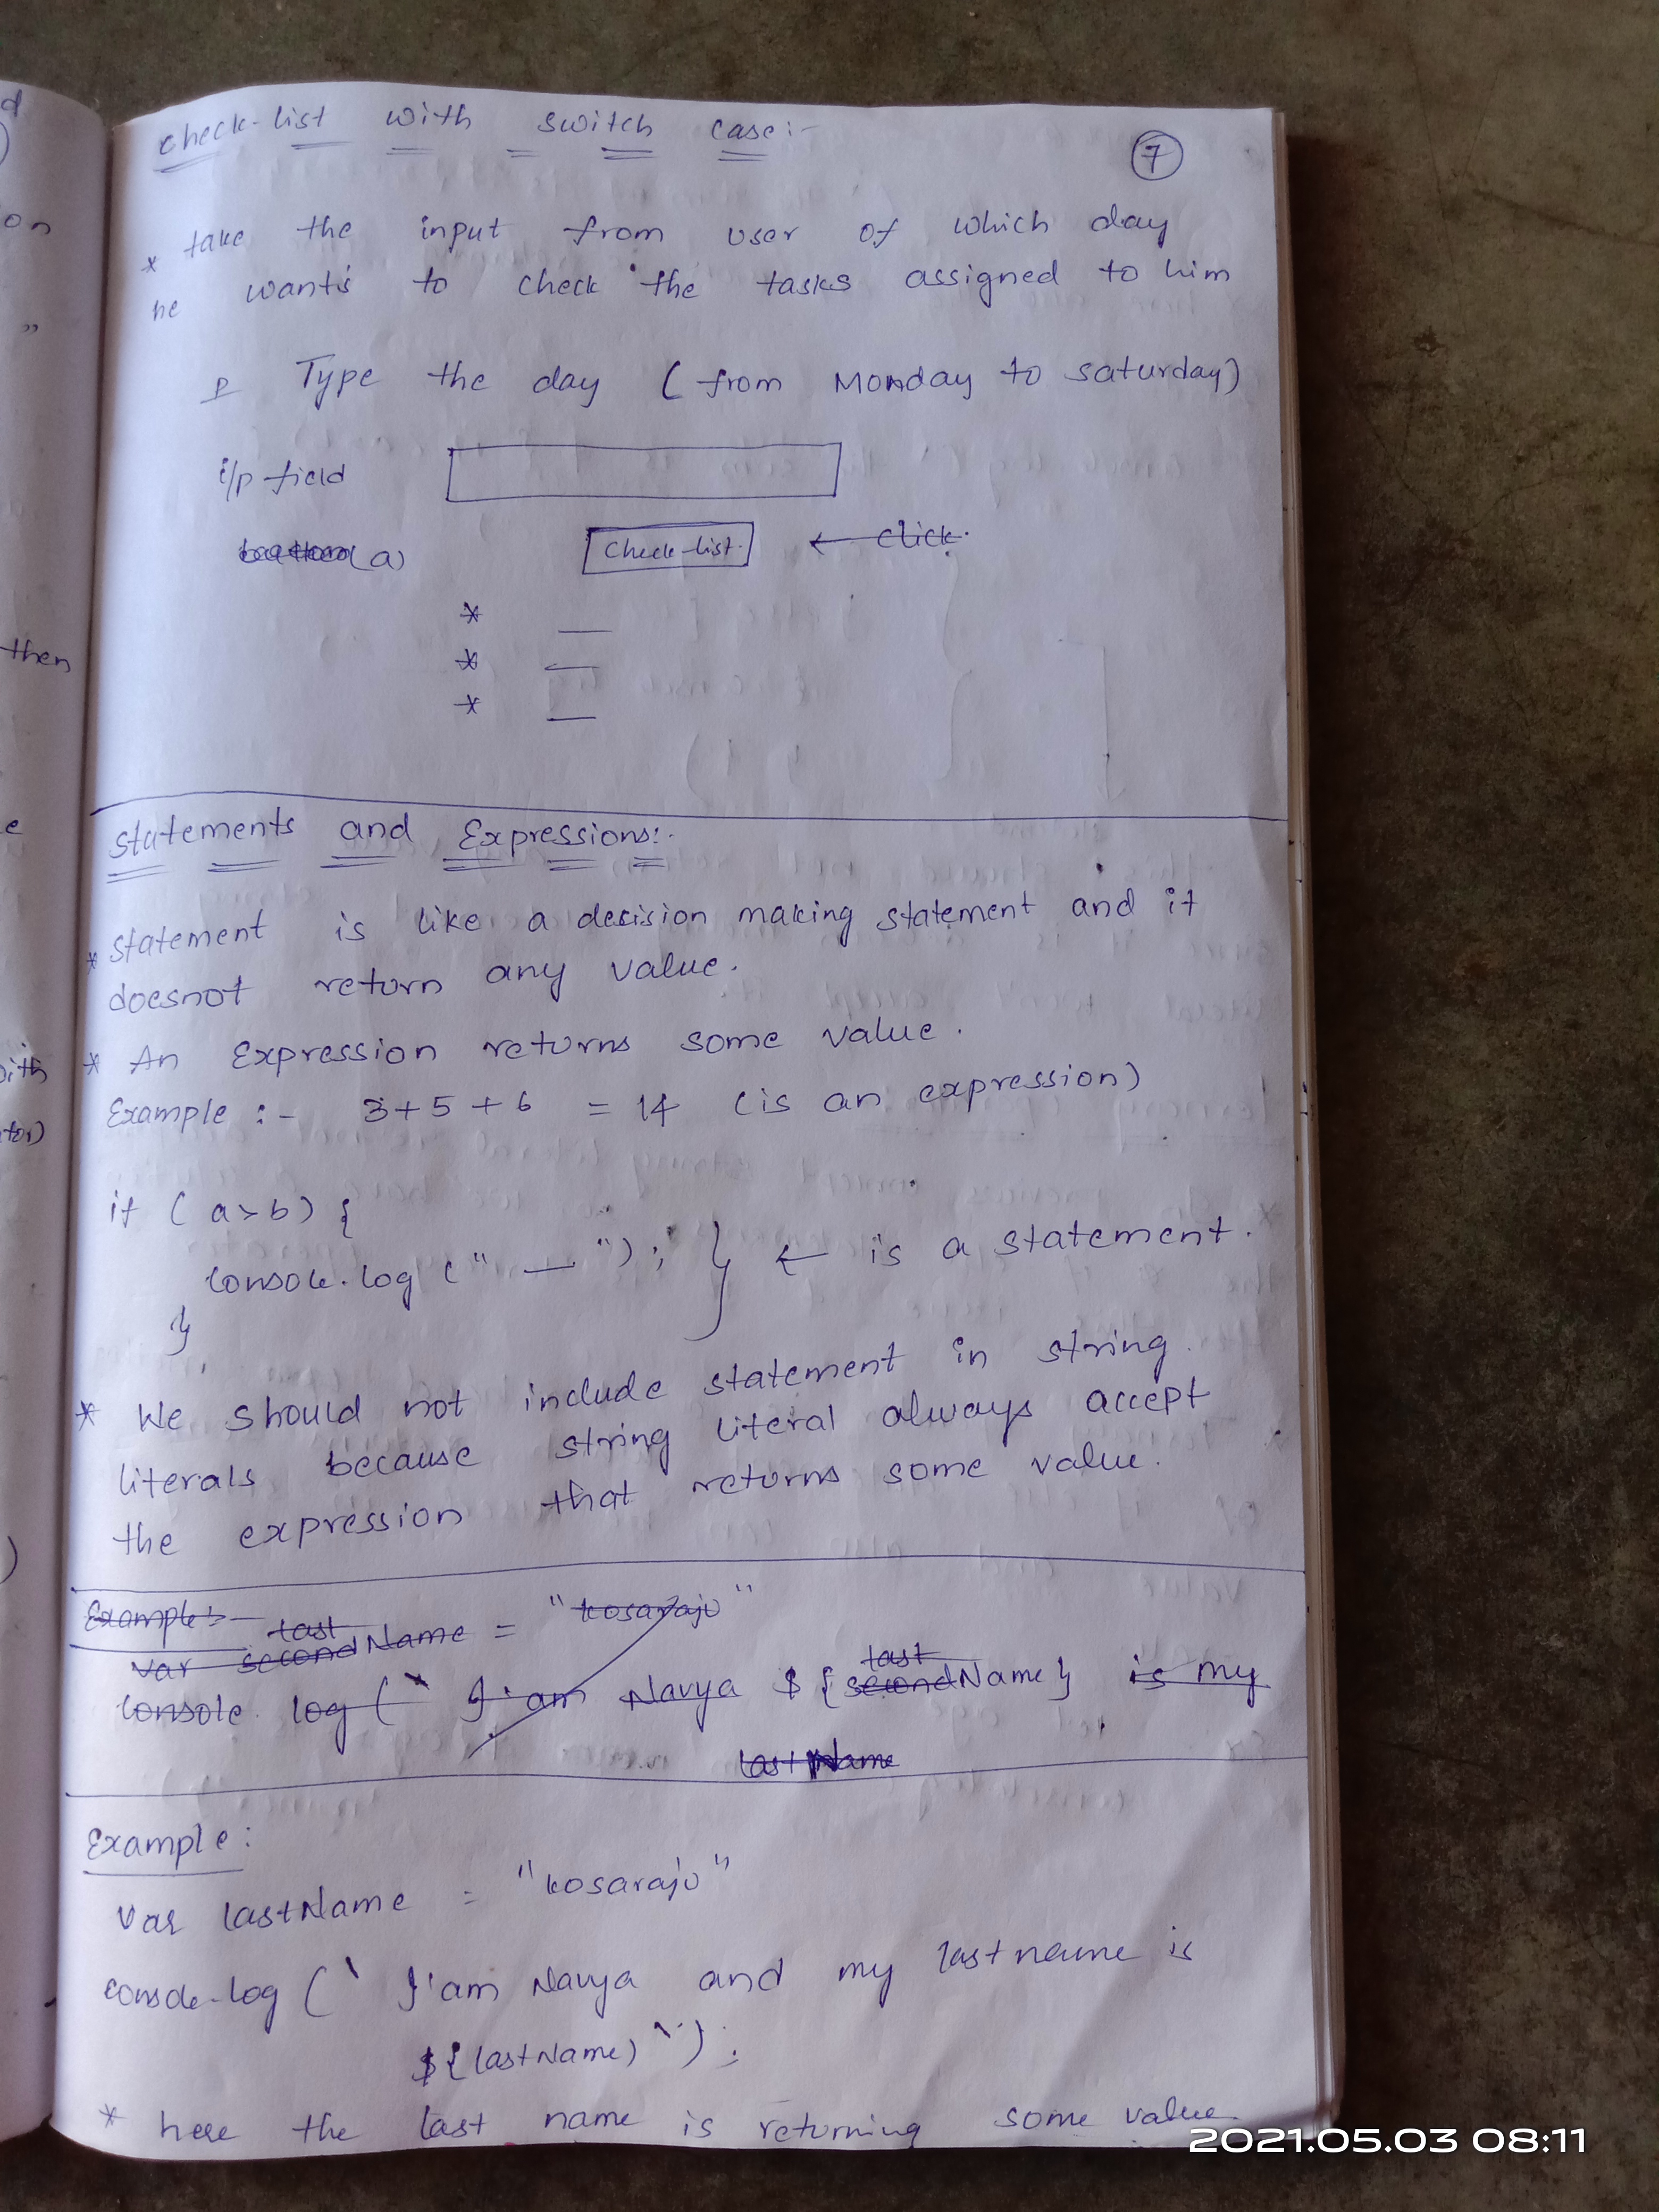 check-list with switch case:-
7
* take the input from user of which day
he wants to check the tasks assigned to him
P Type the day ( from Monday to saturday)
i/p field
button(a) Check-list. ← click.
* __
* __
* __
statements and Expressions:-
* statement is like a decision making statement and it
doesnot return any value.
* An Expression returns some value.
Example :- 3+5+6 = 14 (is an expression)
if ( a>b) {
console.log (" __ "); } ← is a statement.
}
* We should not include statement in string
literals because string literal always accept
the expression that returns some value.
Example:-
last
var secondName = "kosaraju"
last
console.log (` I'am Navya ${secondName} is my
lastName
Example:
var lastName = "kosaraju"
console.log (` I'am Navya and my lastname is
${lastName) `);
* here the last name is returning some value
d
on
"
then
e
with
tor)
)
2021.05.03 08:11